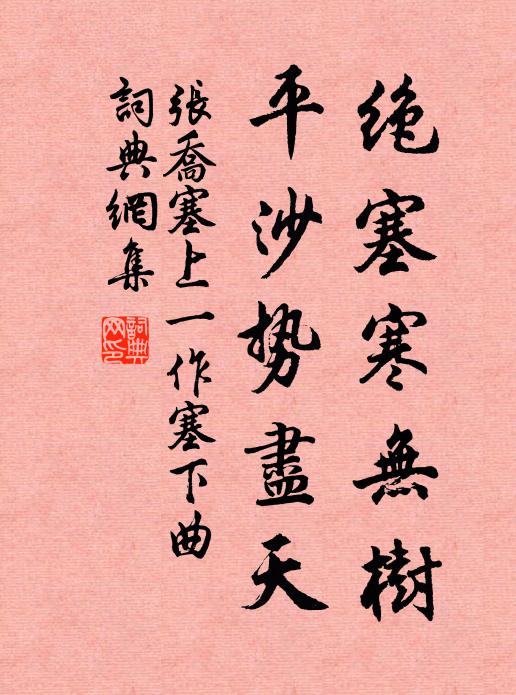 绝塞寒無樹
平沙势盡天
張喬塞上一作塞下曲
詞典網集
詞典网印